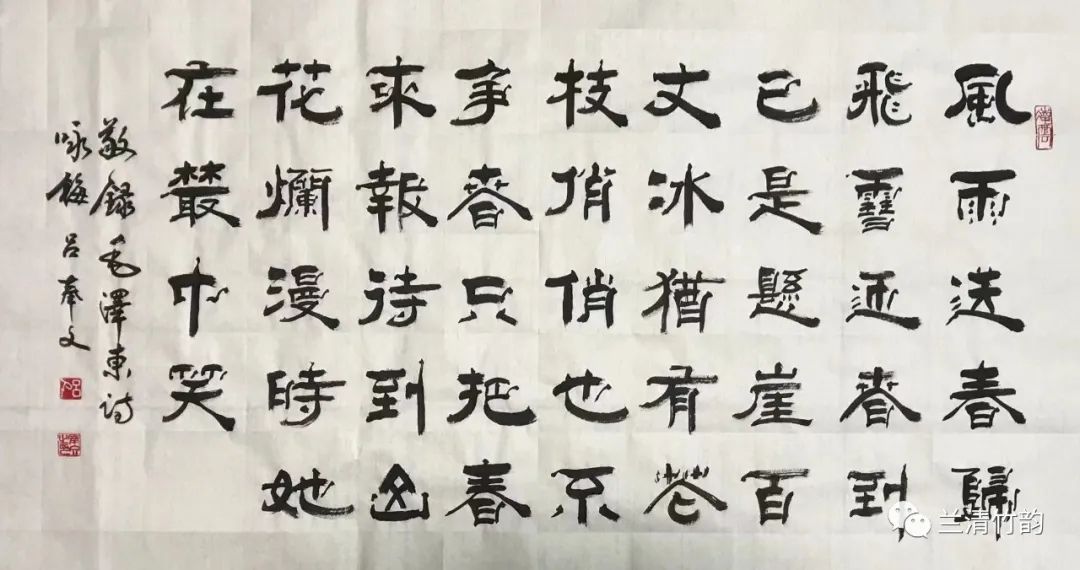 風雨送春歸
飛雪迎春到
已是懸崖百
丈冰猶有花
枝俏俏也不
争春只把春
來報待到山
花爛漫時她
在叢中笑
敬錄毛澤東詩
咏梅 吕奉文
兰清竹韵